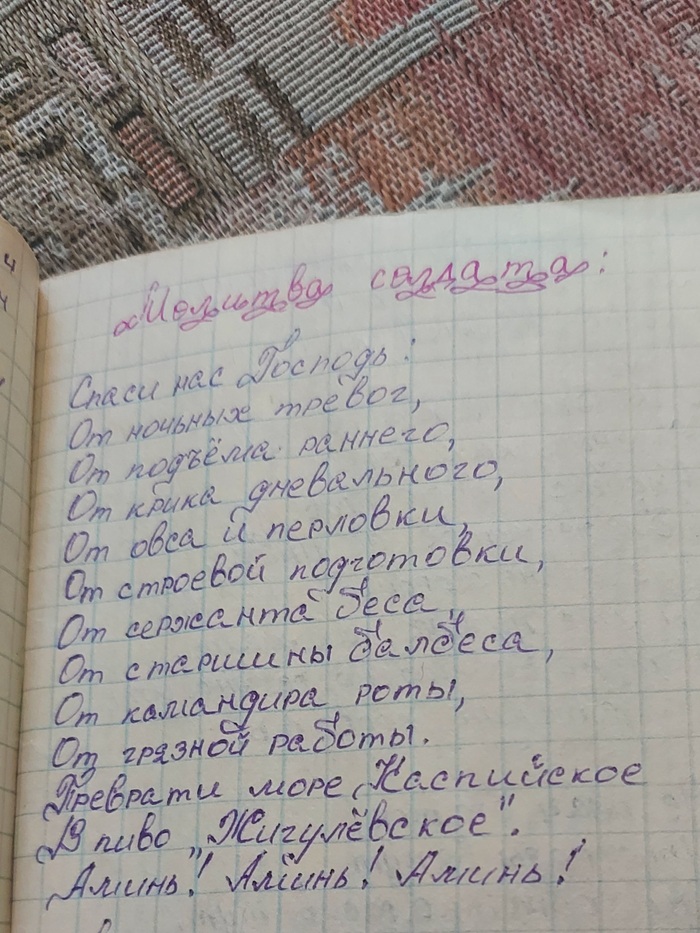 Молитва солдата:
Спаси нас Господь:
От ночьных тревог,
От подъёма раннего,
От крика дневального,
От овса и перловки,
От строевой подготовки,
От сержанта беса,
От старшины балбеса,
От камандира роты,
От грязной работы.
Преврати море Каспийское
В пиво „Жигулёвское".
Аминь! Аминь! Аминь!